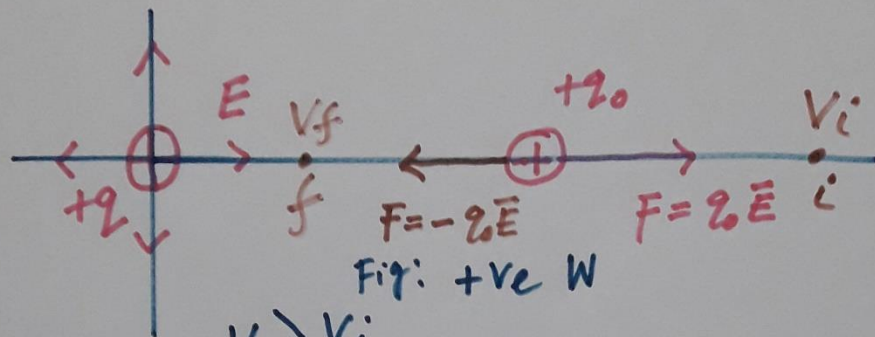 E
Vf
+q₀
Vi
+q
f
F=-q₀E̅
F=q₀E̅
i
Fig: +ve W
Vf > Vi